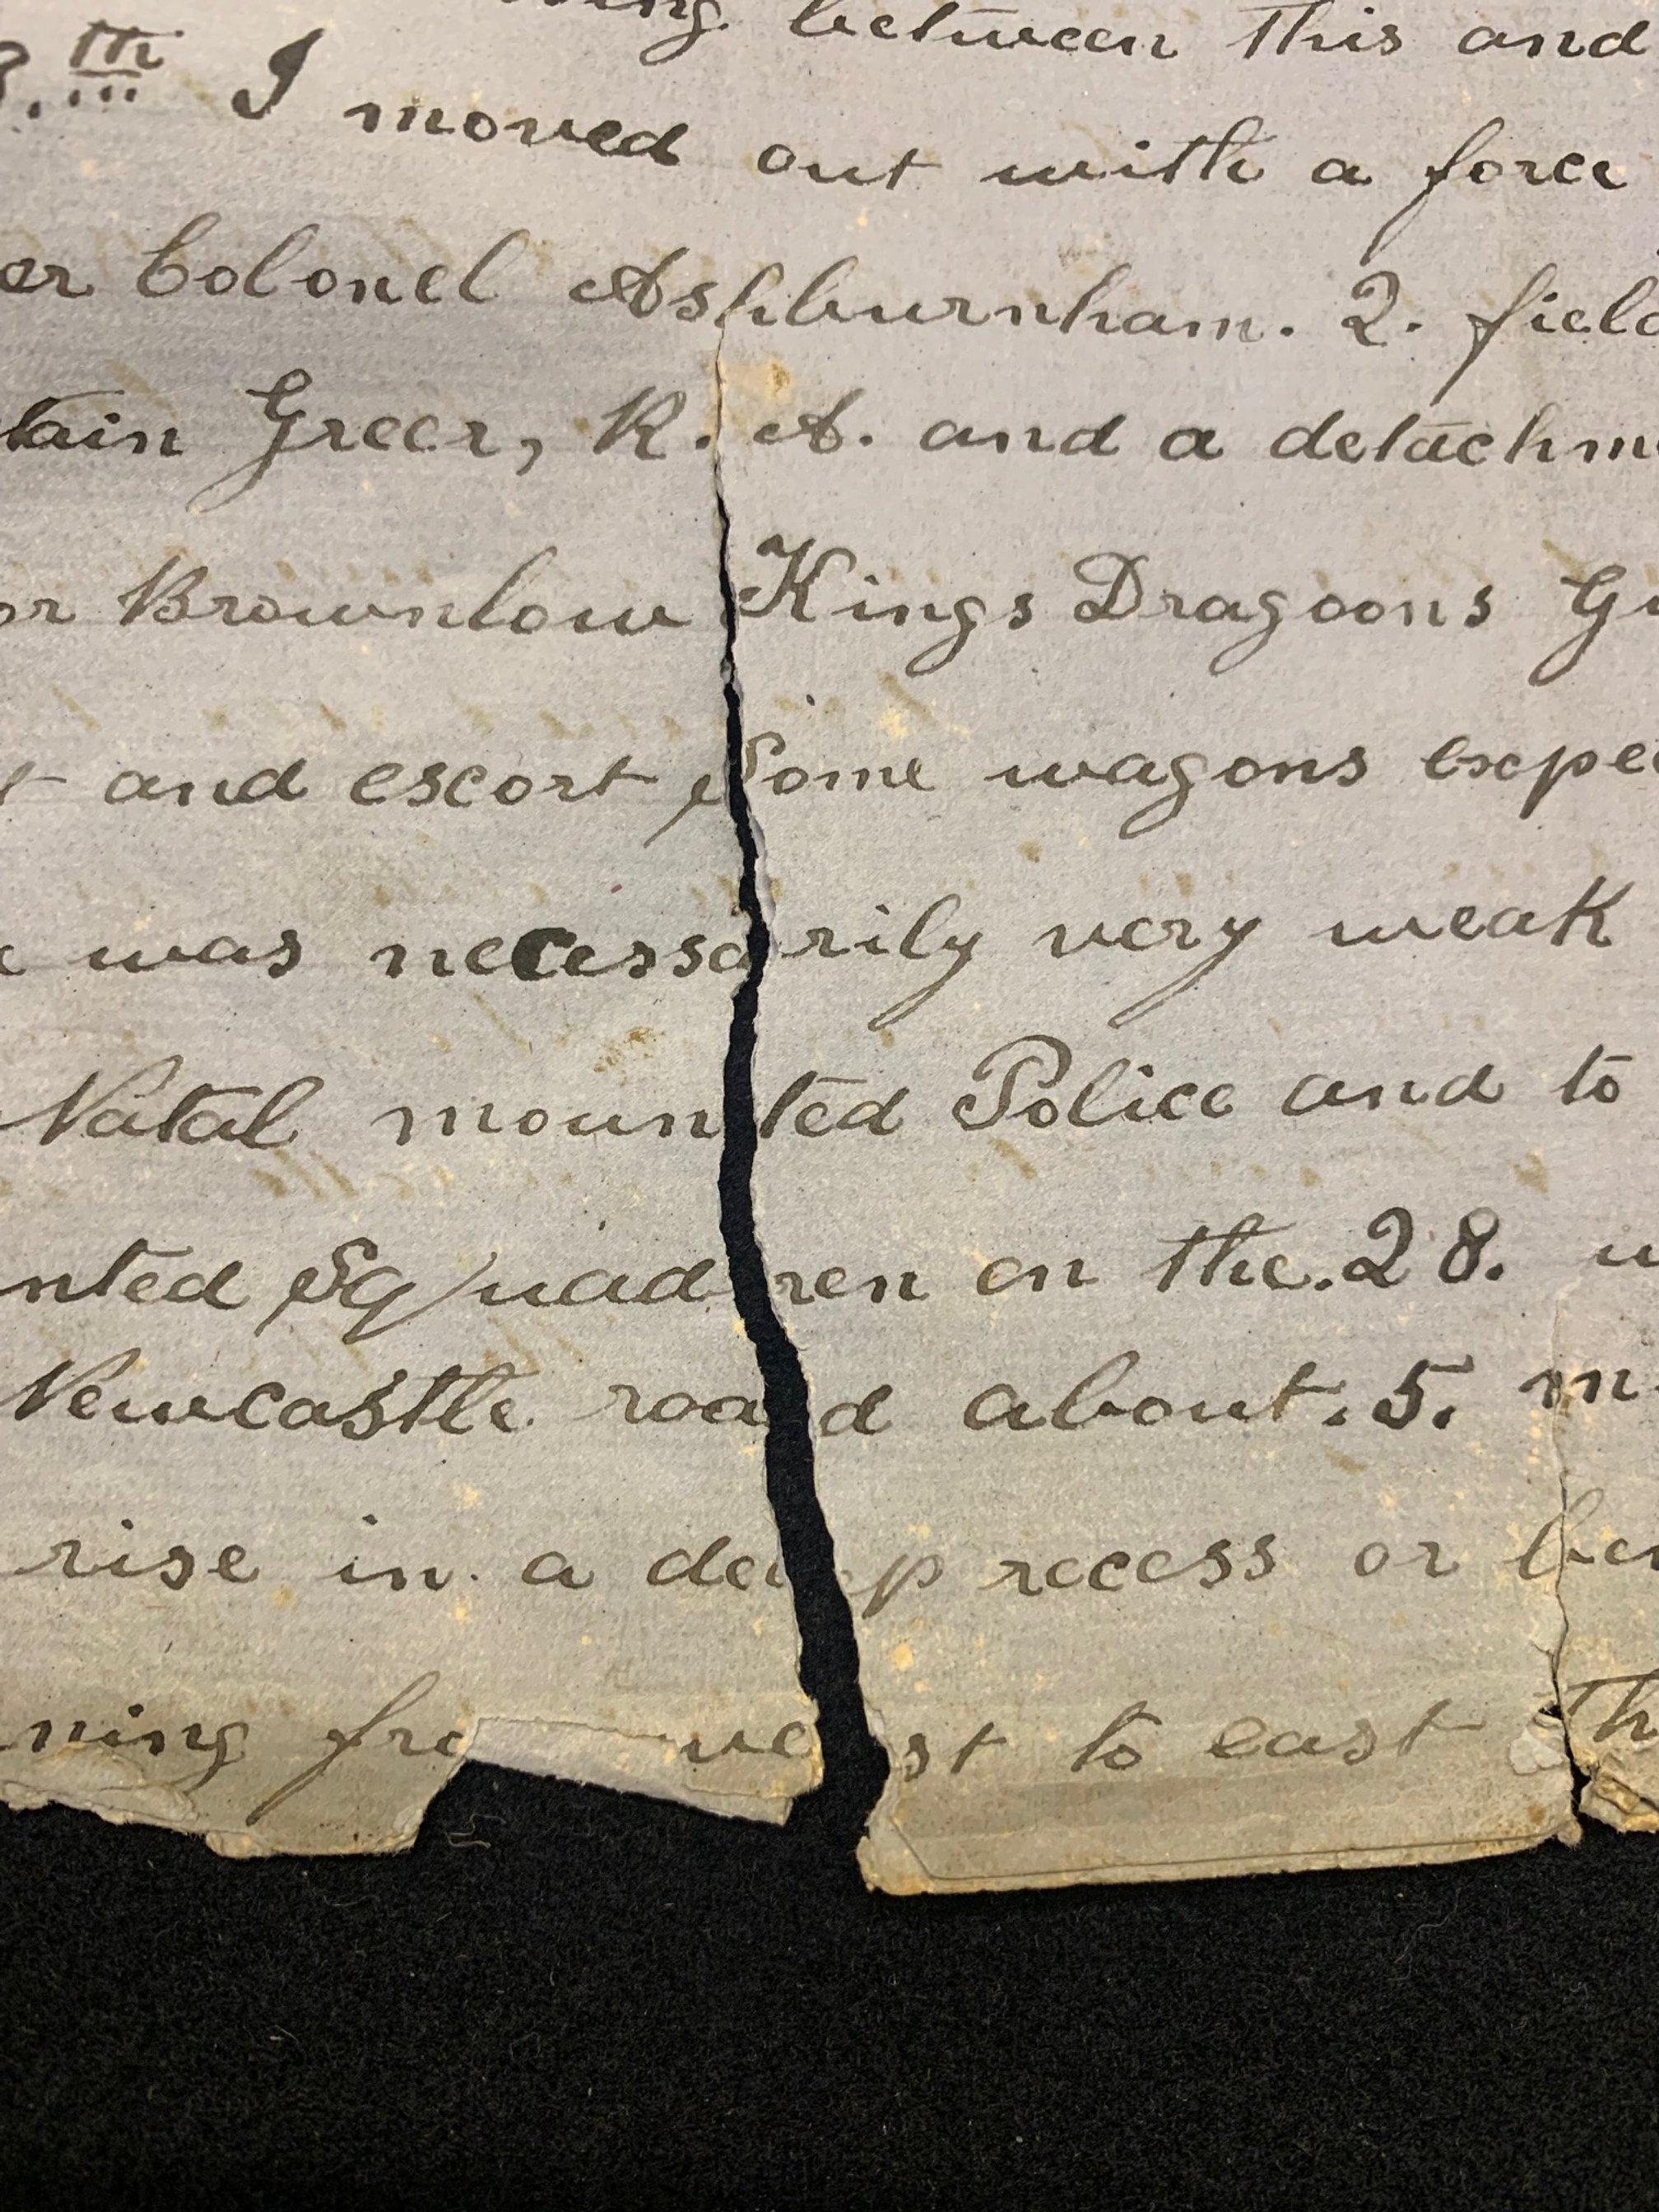 between this and
8.th I moved out with a force
er Colonel Ashburnham. 2. field
tain Greer, R. A. and a detachm
or Brownlow Kings Dragoons Gu
t and escort some wagons expec
e was necessarily very weak
Natal mounted Police and to
nted Squadren on the. 28. u
Newcastle road about. 5. m
rise in a deep recess or ben
ning fro west to east th